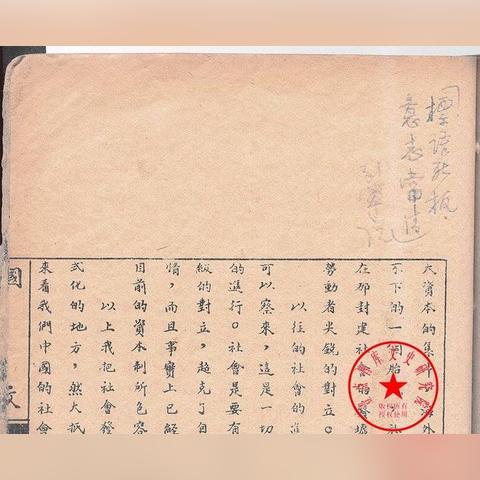 標語死板、
意志當清
大資本的集 海外
下的一個胎
在那封建社 的廢墟
勞動者尖銳的對立。
以往的社會的進
可以察來，這是一切
的進行。社會是要有
級的對立，超克了自
情，而且事實上已經
目前的資本制所包容
以上我把社會發
式化的地方，然大抵
來看我們中國的社會
國 文
版权所有
授权使用